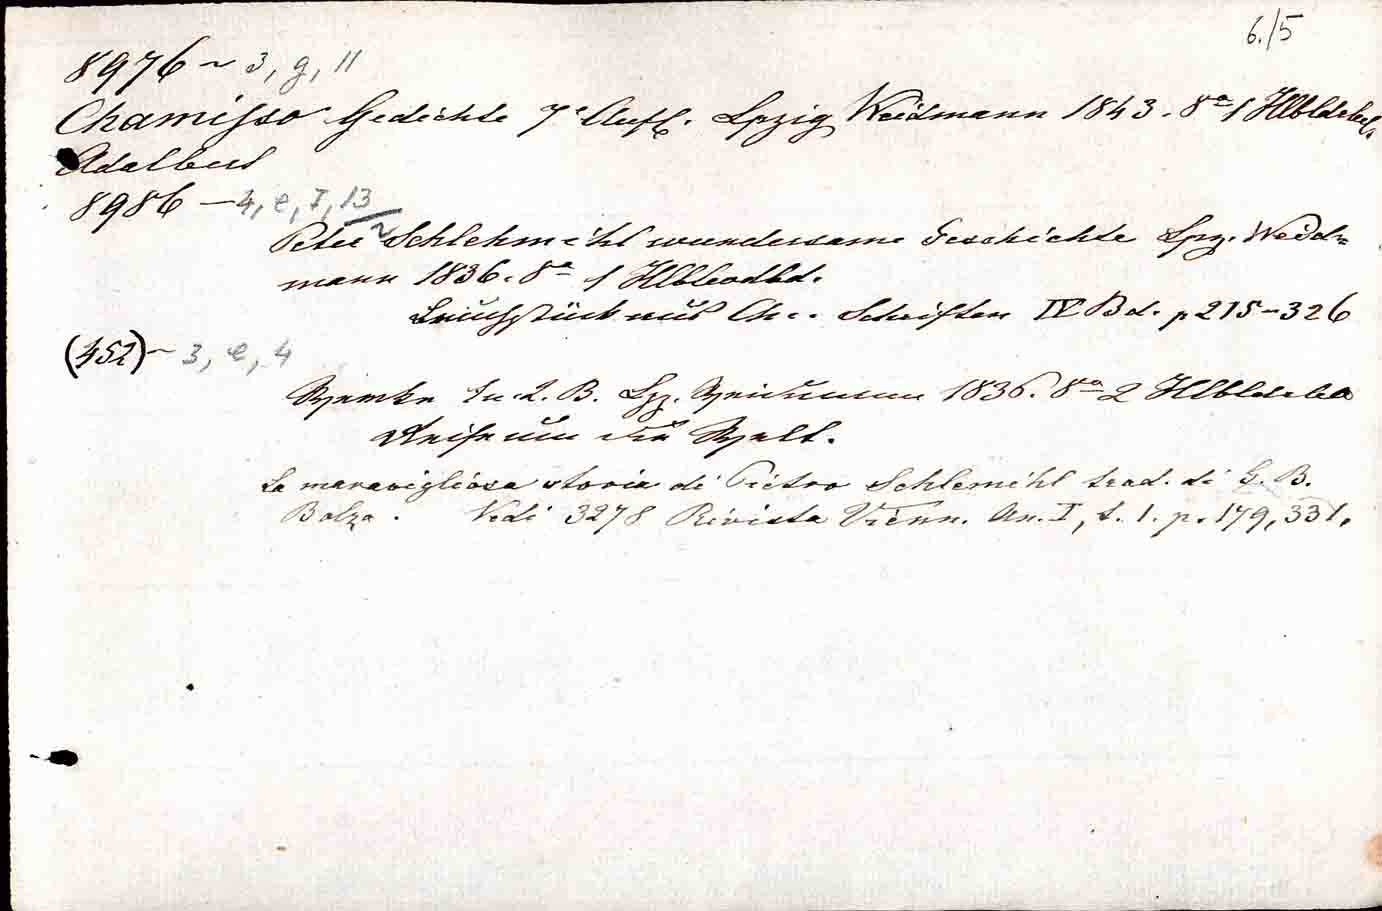 6./5
8976 ~ 3, g, 11
Chamisso Gedichte 7e Aufl. Lpzig Weidmann 1843. 8º 1 Hlbldrbd.
Adalbert
8986 — 4, e, I, 13
Peter Schlehmihl wundersame Geschichte Lpz. Weid=
mann 1836. 8º 1 Hlbleodbd.
Bruchstück aus Ch.. Schriften IV Bd. p 215-326
(452) ~ 3, e, 4
Werke 1u.2. B. Lpz. Weidmann 1836. 8º 2 Hlbldrbd
Reise um die Welt.
La maravigliosa storia di Pietro Schlemihl trad. di G. B.
Bolza. Vedi 3278 Rivista Vienn. An. I, t. 1. p. 179, 331.